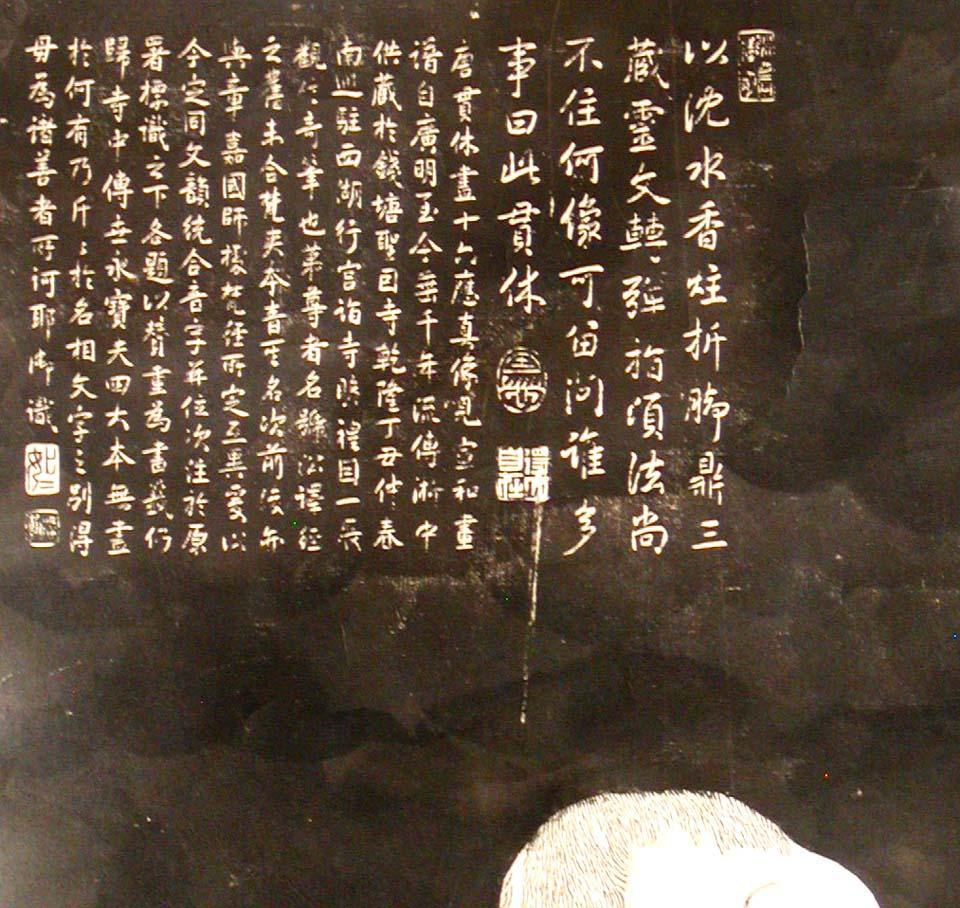 以沈水香炷折腳鼎三
藏靈文轉彈指頃法尚
不住何像可留問誰多
事曰此貫休
唐貫休畫十六應真像見宣和畫
譜自廣明至今垂千年流傳浙中
供藏於錢塘聖因寺乾隆丁丑仲春
南巡駐西湖行宮詣寺瞻禮因一展
觀信奇筆也第尊者名號沿譯經
之舊未合梵夾本音其名次前後亦
與章嘉國師據梵經所定互異爰以
今定同文韻統合音字並位次注於原
署標識之下各題以贊重為書籤仍
歸寺中傳世永寶夫四大本無畫
於何有乃斤〻於名相文字之別得
毋為諸善者所訶耶御識